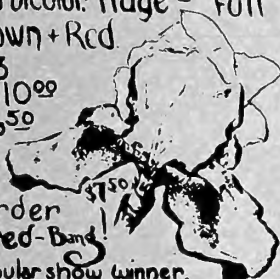 bicolor. Huge - Full
own + Red.
3
10⁰⁰
5⁰
$7⁵⁰
order
ed-Bang!
ular show winner.